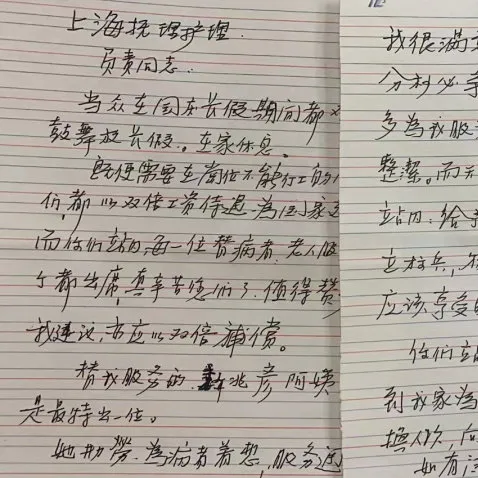 上海抚理护理.
负责同志:
当众在国庆长假期间都
鼓舞放长假。在家休息.
既便需要在岗位不能行工的
们,都以双倍工资待遇.为国家
而你们站内每一位替病者.老人服
个都出席,真辛苦您们了.值得赞
我建议,亦应以双倍補偿。
替我服务的 兆彦阿姨
是最特出一位。
她勤劳.为病者着想,服务
我很满
分秒必
多為我服
整潔。而
站内:给
立标兵,
应该享受
你们站
到我家為
换人欤,
如有